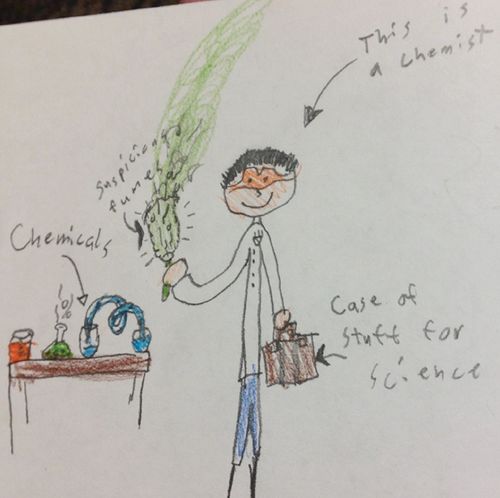 This is
a chemist
Suspicious
fumes
Chemicals
Case of
stuff for
science